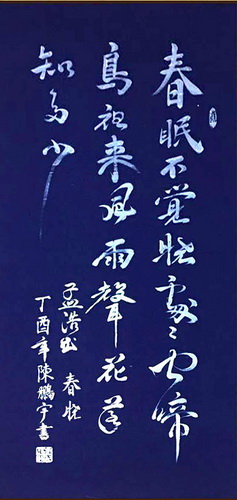 春眠不覺曉處〻聞啼
鳥夜来風雨聲花落
知多少
孟浩然 春曉
丁酉年陳鵬宇書